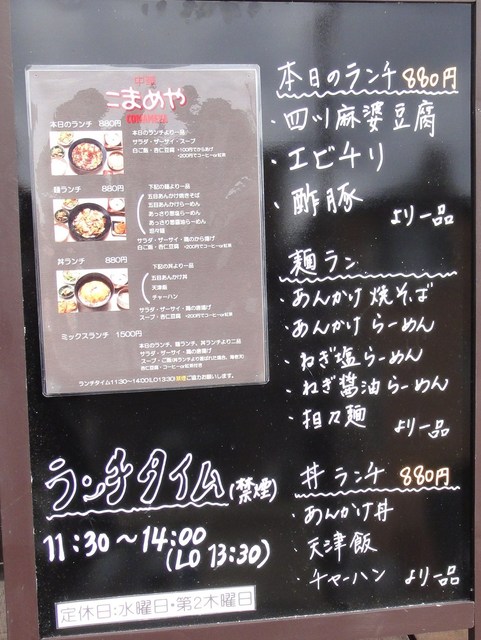 中華
こまめや
COMAMEYA
本日のランチ 880円
本日のランチより一品
サラダ・ザーサイ・スープ
白ご飯・杏仁豆腐
麺ランチ 880円
下記の麺より一品
五目あんかけ焼きそば
五目あんかけらーめん
あっさり葱塩らーめん
あっさり葱醤油らーめん
担々麺
サラダ・ザーサイ・鶏のから揚げ
白ご飯・杏仁豆腐
丼ランチ 880円
下記の丼より一品
五目あんかけ丼
天津飯
チャーハン
サラダ・ザーサイ・鶏の唐揚げ
スープ・杏仁豆腐
ミックスランチ 1500円
本日のランチ、麺ランチ、丼ランチより二品
サラダ・ザーサイ・鶏の唐揚げ
ランチタイム11:30～14:00(LO13:30)禁煙ご協力お願いします。
ランチタイム(禁煙)
11:30～14:00
(LO 13:30)
定休日:水曜日・第2木曜日
本日のランチ 880円
・四川麻婆豆腐
・エビチリ
・酢豚
より一品
麺ラン
・あんかけ焼そば
・あんかけらーめん
・ねぎ塩らーめん
・ねぎ醤油らーめん
・担々麺
より一品
丼ランチ 880円
・あんかけ丼
・天津飯
・チャーハン より一品